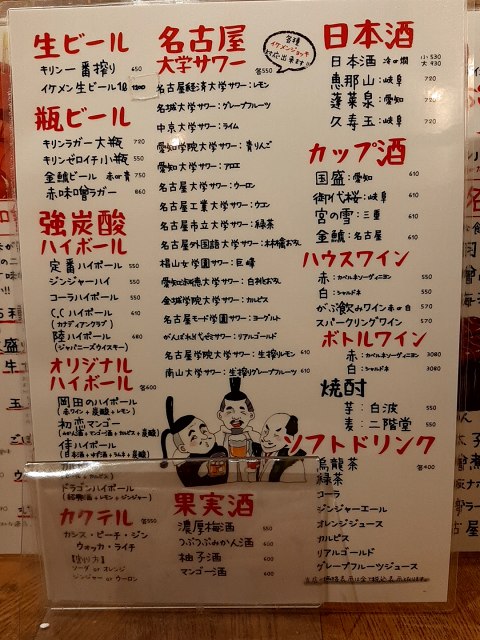 生ビール
キリン一番搾り 650
イケメン生ビール1ℓ 1200
瓶ビール
キリンラガー大瓶 720
キリンゼロイチ小瓶 550
金鯱ビール 赤or青 750
赤味噌ラガー 860
強炭酸
ハイボール
定番ハイボール 550
ジンジャーハイ 550
コーラハイボール 550
C.Cハイボール 610
(カナディアンクラブ)
陸ハイボール 680
(ジャパニーズウイスキー)
オリジナル
ハイボール 各600
岡田のハイボール
(赤ワイン+炭酸+レモン)
初恋マンゴー
ドラゴンハイボール
カクテル 各550
カシス・ピーチ・ジン
ウォッカ・ライチ
【割り方】
ソーダ or オレンジ
ジンジャー or ウーロン
名古屋
大学サワー 各550
各種
イケメンジョッキ
対応出来ます!!
名古屋経済大学サワー:レモン
名城大学サワー:グレープフルーツ
中京大学サワー:ライム
愛知学院大学サワー:青りんご
愛知大学サワー:アロエ
名古屋大学サワー:ウーロン
名古屋工業大学サワー:ウコン
名古屋市立大学サワー:緑茶
名古屋外国語大学サワー:林檎お酢
椙山女学園サワー:巨峰
愛知淑徳大学サワー:白桃お酢
金城学院大学サワー:カルピス
名古屋モード学園サワー:ヨーグルト
がんばれ古代ゼミサワー:リアルゴールド
名古屋学院大学サワー:生搾りレモン 610
南山大学サワー:生搾りグレープフルーツ 610
果実酒
濃厚梅酒 550
つぶつぶみかん酒 600
柚子酒 600
マンゴー酒 600
日本酒
日本酒 冷or燗 小530
大930
恵那山:岐阜 720
蓬莱泉:愛知 720
久寿玉:岐阜 720
カップ酒
国盛:愛知 610
御代桜:岐阜 610
宮の雪:三重 610
金鯱:名古屋 610
ハウスワイン
赤:カベルネソーヴィニヨン 550
白:シャルドネ 550
がぶ飲みワイン 赤or白 570
スパークリングワイン 570
ボトルワイン
赤:カベルネソーヴィニヨン 3080
白:シャルドネ 3080
焼酎
芋:白波 550
麦:二階堂 550
ソフトドリンク
各400
烏龍茶
緑茶
コーラ
ジンジャーエール
オレンジジュース
カルピス
リアルゴールド
グレープフルーツジュース